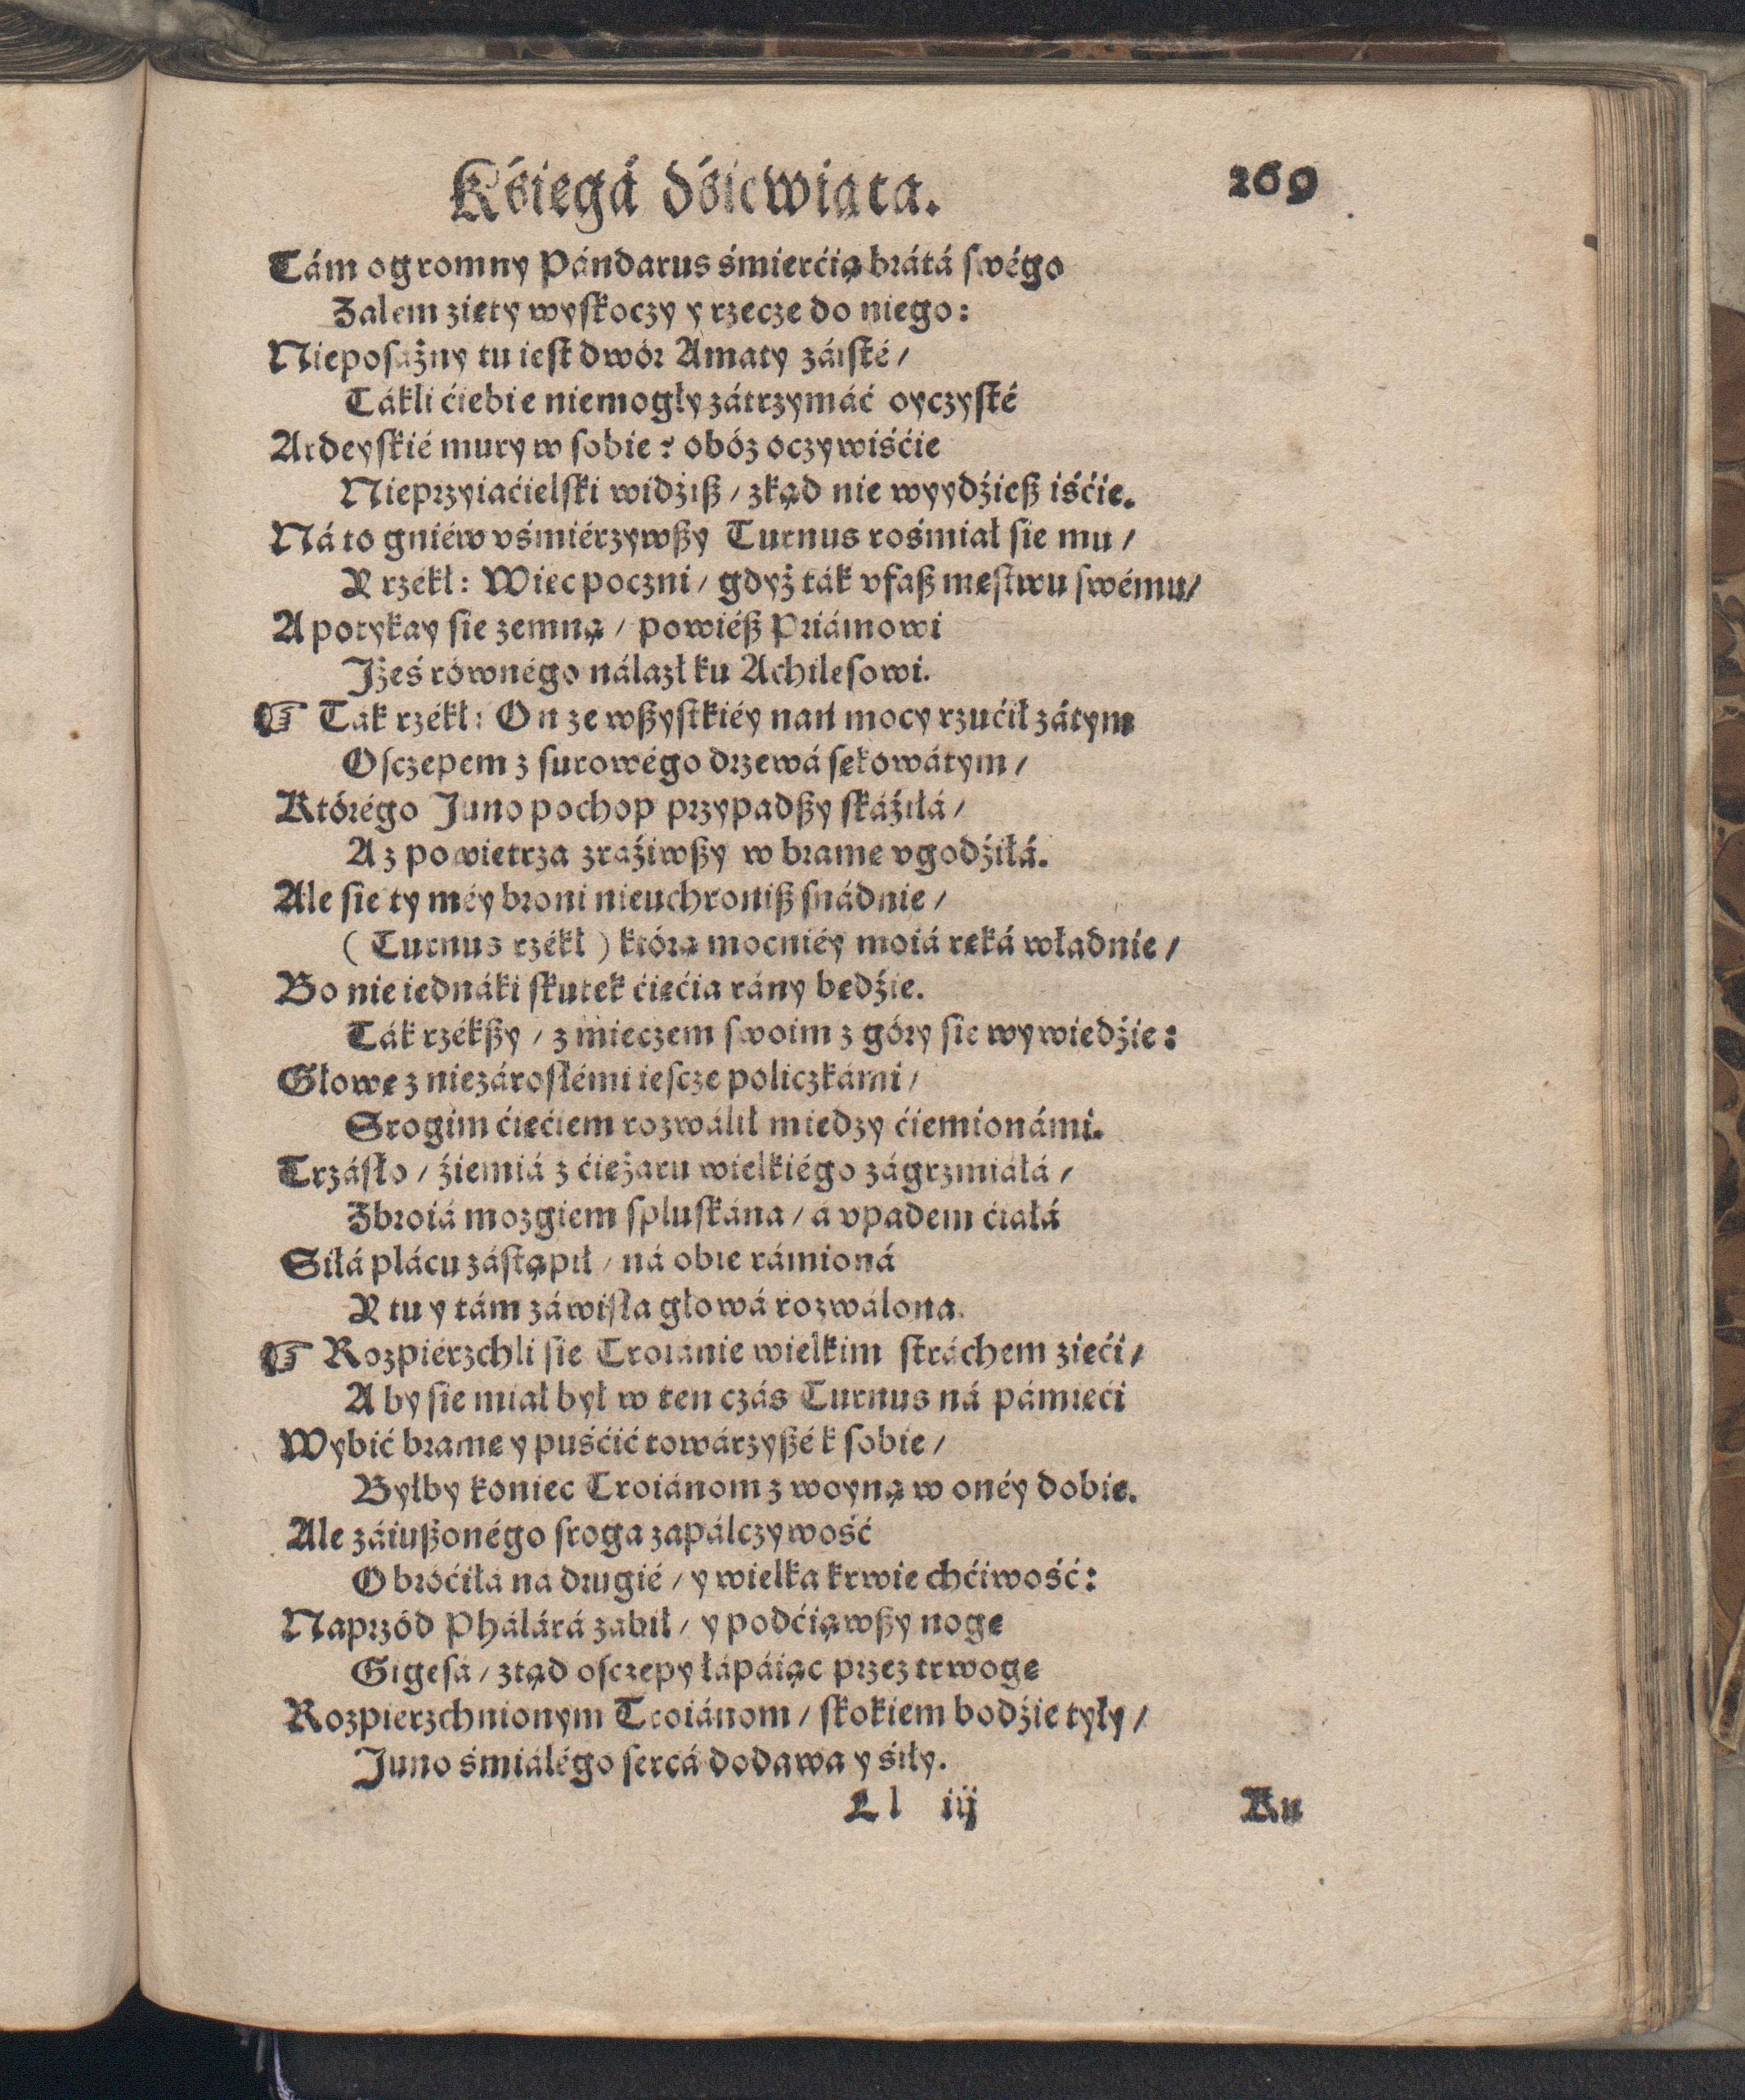 Kśięgá dźiewiąta. 269
Tám ogromny Pándarus śmierćią brátá swégo
Zalem zięty wyskoczy y rzecze do niego:
Nieposażny tu iest dwór Amaty záisté /
Tákli ćiebie niemogły zátrzymáć oyczysté
Ardeyskié mury w sobie? obóz oczywiśćie
Nieprzyiaćielski widźisz / zkąd nie wyydźiesz iśćie.
Ná to gniéw vśmiérzywszy Turnus rośmiał sie mu /
Y rzékł: Więc poczni / gdyż ták vfasz męstwu swému /
A potykay sie zemną / powiész Priámowi
Jżeś równégo nálazł ku Achilesowi.
☞ Tak rzékł: On ze wszystkiéy nań mocy rzućił zátym
Osczepem z surowégo drzewá sękowátym /
Którégo Juno pochop przypadszy skáźiłá /
A z powietrza zraźiwszy w bramę vgodźiłá.
Ale sie ty méy broni nieuchronisz snádnie /
(Turnus rzékł) którą mocniéy moiá ręká władnie /
Bo nie iednáki skutek ćięćia rány będźie.
Ták rzékszy / z mieczem swoim z góry sie wywiedźie:
Głowę z niezárosłémi iescze policzkámi /
Srogim ćięćiem rozwálił miedzy ćiemionámi.
Trzásło / źiemiá z ćiężaru wielkiégo zágrzmiáłá /
Zbroiá mozgiem spluskána / á vpadem ćiałá
Siłá plácu zástąpił / ná obie rámioná
Y tu y tám záwisła głowá rozwálona.
☞ Rozpiérzchli sie Troiánie wielkim stráchem zięći /
A by sie miał był w ten czás Turnus ná pámięći
Wybić bramę y puśćić towárzyszé k sobie /
Byłby koniec Troiánom z woyną w onéy dobie.
Ale záiuszonégo sroga zapálczywość
Obróćiła na drugié / y wielka krwie chćiwość:
Naprzód Phálárá zabił / y podćiąwszy nogę
Gigesá / ztąd osczepy łápáiąc przez trwogę
Rozpierzchnionym Troiánom / skokiem bodźie tyły /
Juno śmiáłégo sercá dodawa y śiły.
Ll iij Ku